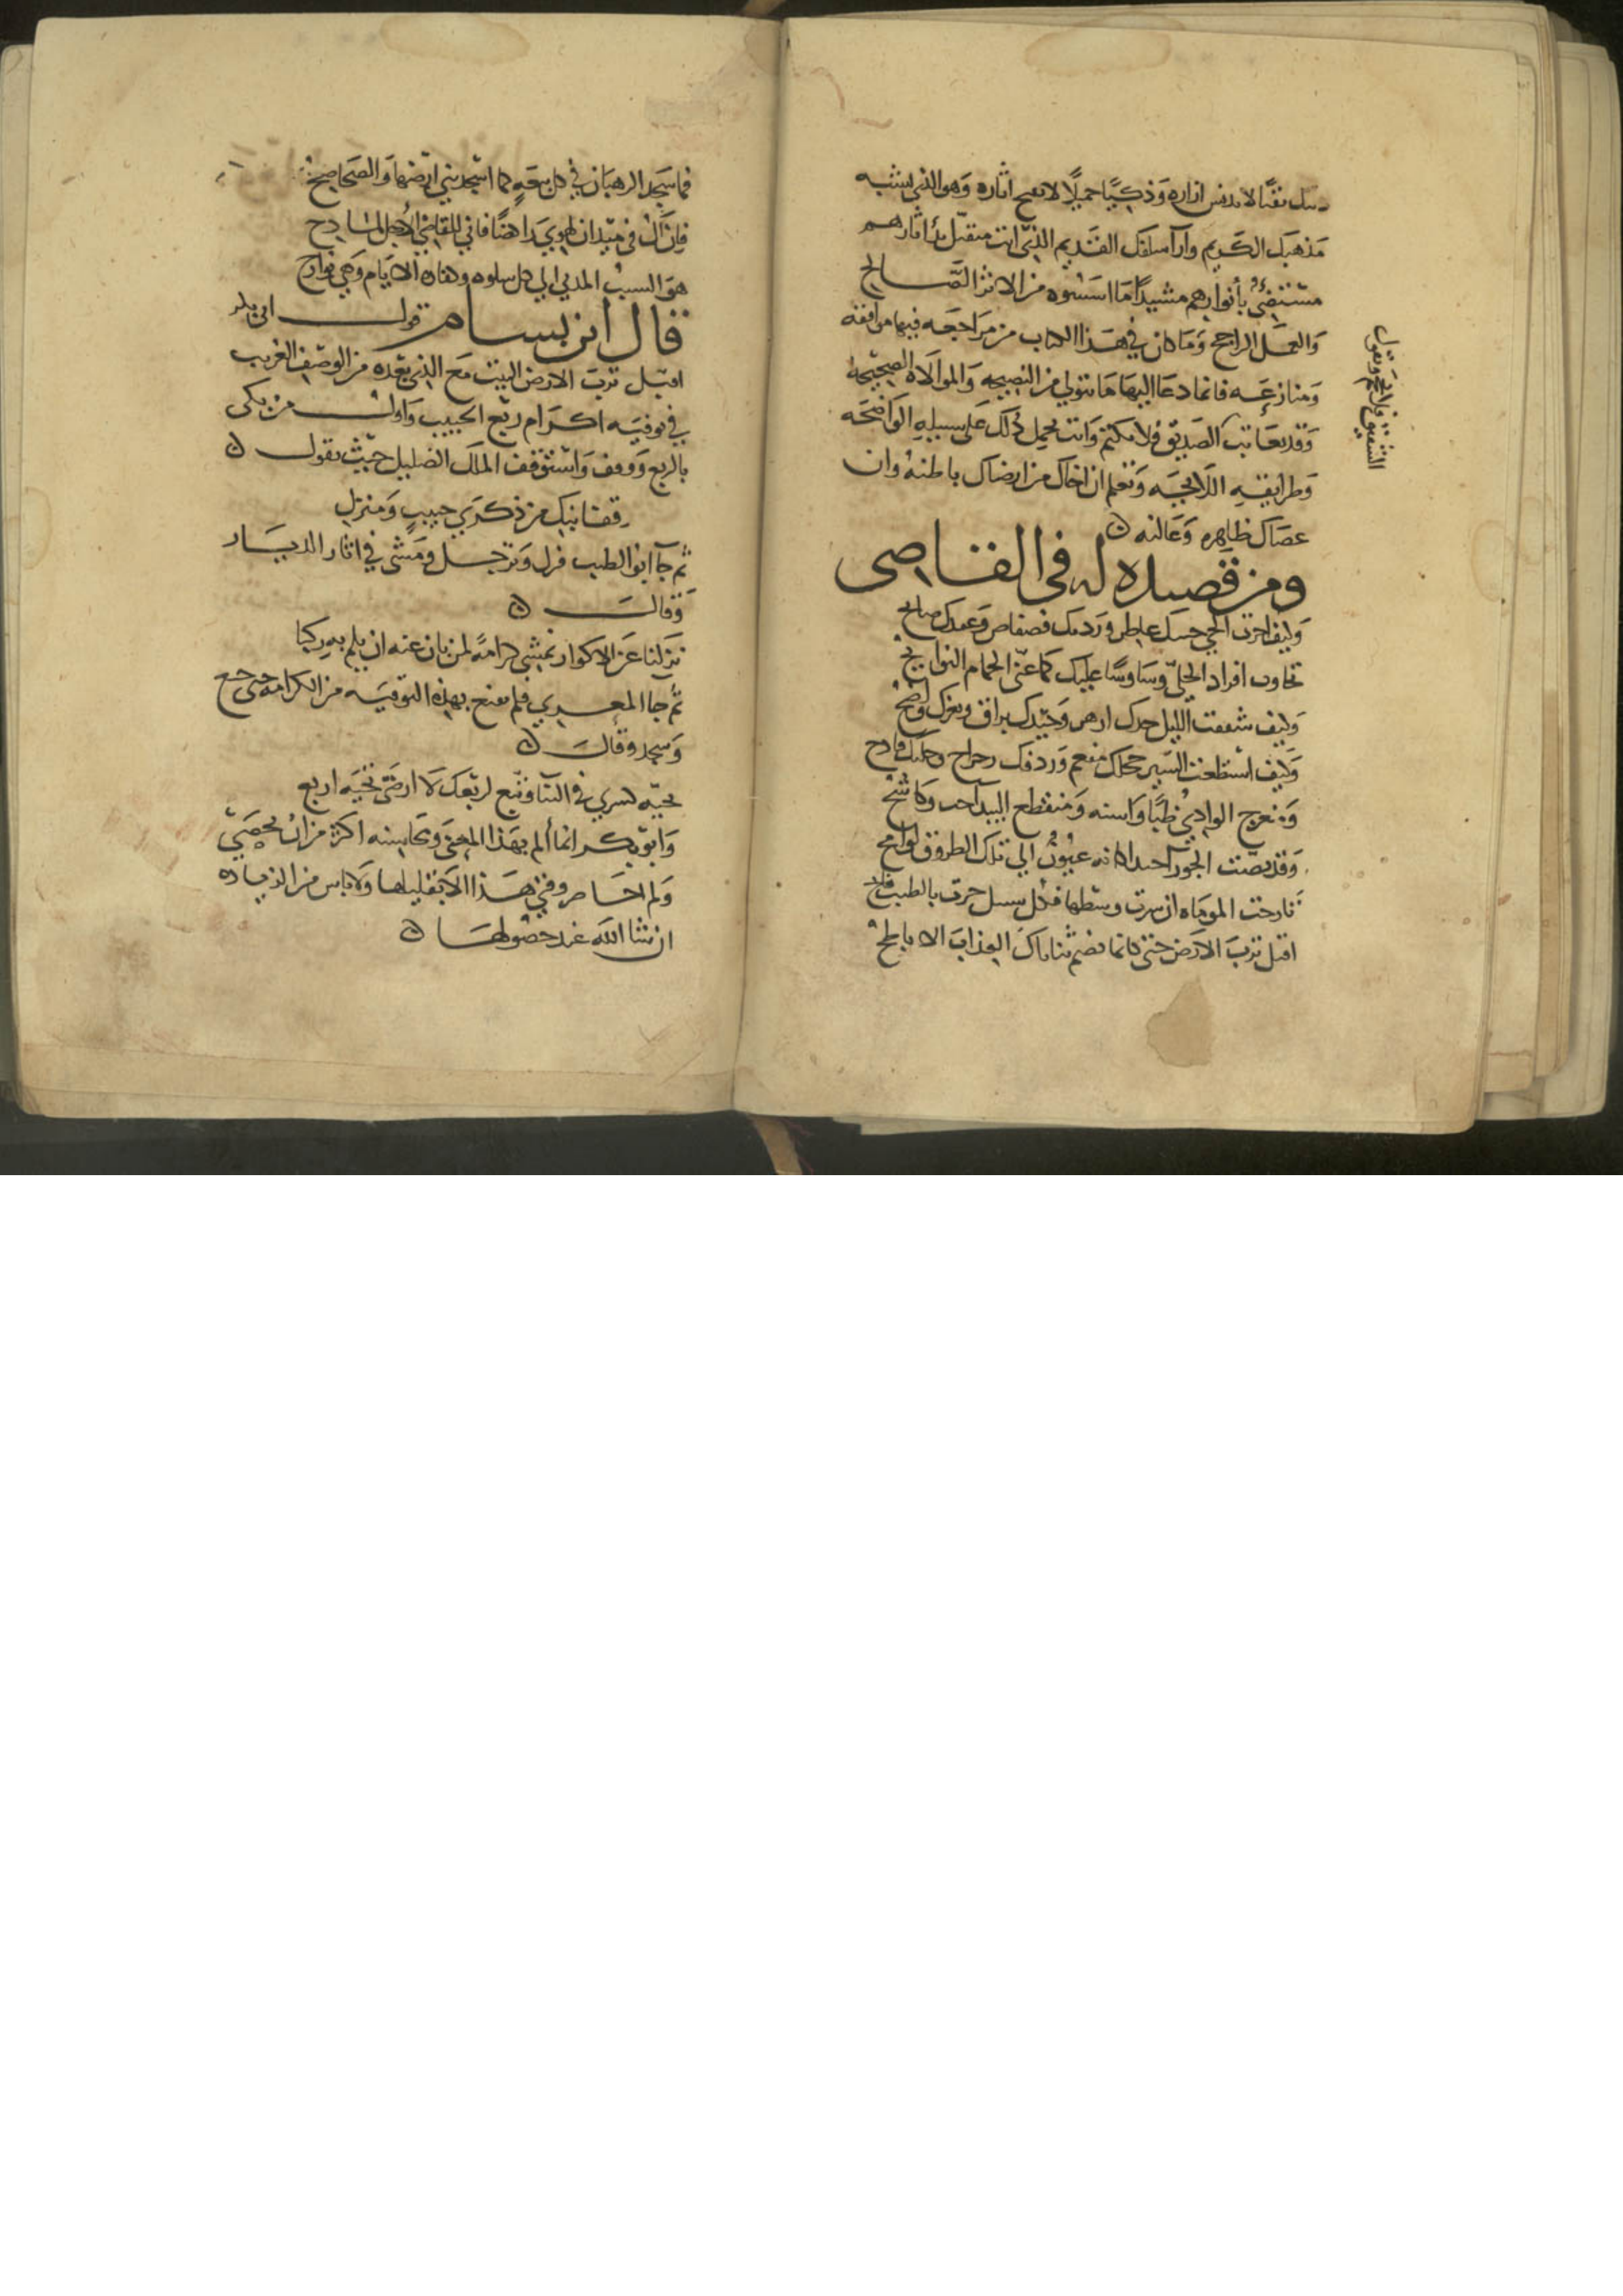 نقيا لا تدنس ازاره وذكرا جميلا لا تقبح اثاره وهو الذي يشبه
مذهبك الكريم وآراء سلفك القديم الذي انت متقبل لآثارهم
مستضئ بأنوارهم مشيدا ما اسسوه من الاثر الصالح
والعمل الراجح وما كان في هذا الكتاب من مراجعه فيها موافقه
ومنازعه فانما دعا اليها ما نتولى من النصيحه والموالاه الصحيحه
وقد يعاتب الصديق فلا يكتم وانت تحمل ذلك على سبيله الواضحه
وطرايقه اللايحه وتعلم ان اخاك من ارضاك باطنه وان
عصاك ظاهره وعالنه
ومن قصيده له في القاضي
وكيف اجرت الحي حسك عاطر وردفك فضفاض وعقدك صايح
تجاوب افراد الحلي وساوسا عليك كما غنى الحمام النوايح
وكيف شققت الليل خدك ازهر وجيدك براق وثغرك واضح
وكيف استطعت السير حجلك مفعم وردفك رجراج وحليك فادح
ومنعرج الوادي ظبا واسنه ومنقطع البيدا وكاشح
وقد نصت الجوزا عيون الى تلك الطروق لوامح
تارجت الموماه ان سرت وسطها فكل سبيل جزت بالطيب
اقبل ترب الارض حتى كانما تضم ثناياك العذاب الاباطح
فما سجد الرهبان في كل بيعه كما اسجدتني ارضها والصحاصح
فان ال في ميدان الهوى راهنا فاني للقاضي الاجل لمادح
هو السبب المدني الى كل سلوه الايام وهي فوادح
قال ابن بسام قول ابي بكر
اقبل ترب الارض البيت مع الذي بعده من الوصف الغريب
في توفيه اكرام ربع الحبيب واول من بكى
بالربع ووقف واستوقف الملك الضليل حيث يقول
قفا نبك من ذكرى حبيب ومنزل
ثم جآ ابو الطيب فنزل وترجل ومشى في اثار الديار
وقال
نزلنا عن الاكوار نمشي كرامة لمن بان عنه ان يلم به ركبا
ثم جا المعري فلم يقنع بهذه التوفيه من الكرامه حتى خشع
وسجد وقال
تحيه كسرى في السنآ وتبع لربعك لا ارضى تحيه اربع
وابو بكر انما ألم بهذا المعنى ومحاسنه اكثر من ان تحصى
ولم احاصر وفتي هذا الا بقليلها ولا باس من الزياده
ان شا الله عند حصولها